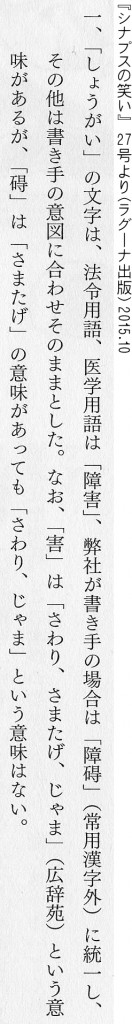 『シナプスの笑い』 27号より(ラグーナ出版) 2015.10
一、「しょうがい」の文字は、法令用語、医学用語は「障害」、弊社が書き手の場合は「障碍」(常用漢字外)に統一し、
その他は書き手の意図に合わせそのままとした。なお、「害」は「さわり、さまたげ、じゃま」(広辞苑)という意
味があるが、「碍」は「さまたげ」の意味があっても「さわり、じゃま」という意味はない。